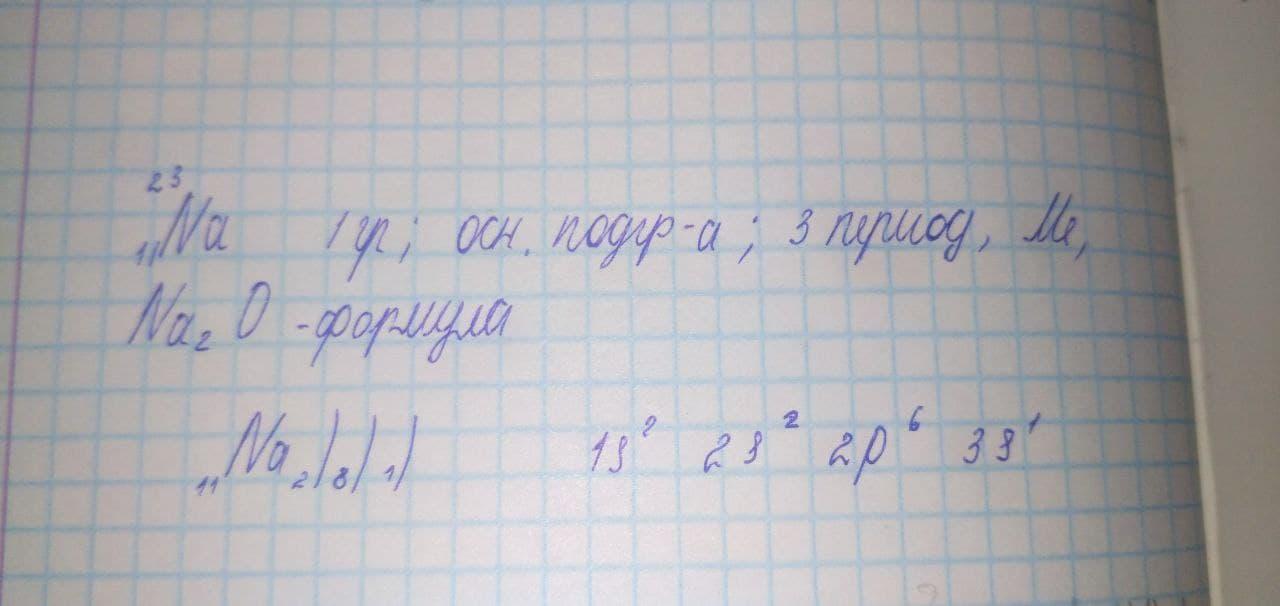 ²³₁₁Na 1 гр; осн. подгр-а; 3 период, Ме,
Na₂O - формула
₁₁Na ₂) ₈) ₁) 1s² 2s² 2p⁶ 3s¹